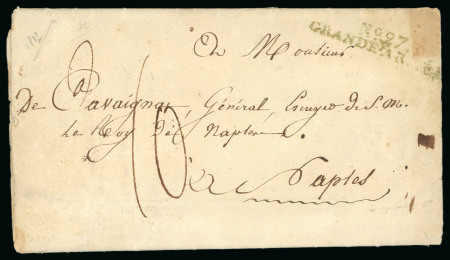 No 97.
GRANDE ARMÉE
En Monsieur
De Cavaignac, Général, Ecuyer de S. M.
Le Roy de Naples.
16
à Naples